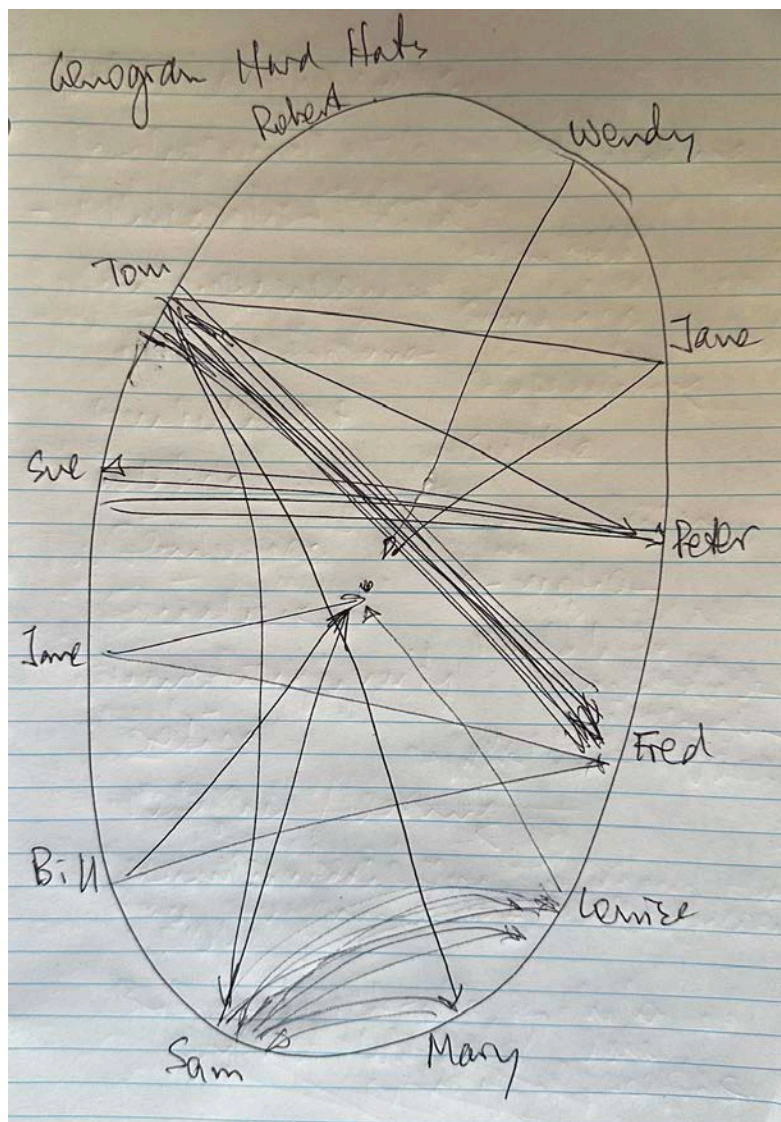 Genogram Hard Hats
Robert
Wendy
Tom
Jane
Sue
Peter
Jane
Fred
Bill
Sam
Mary